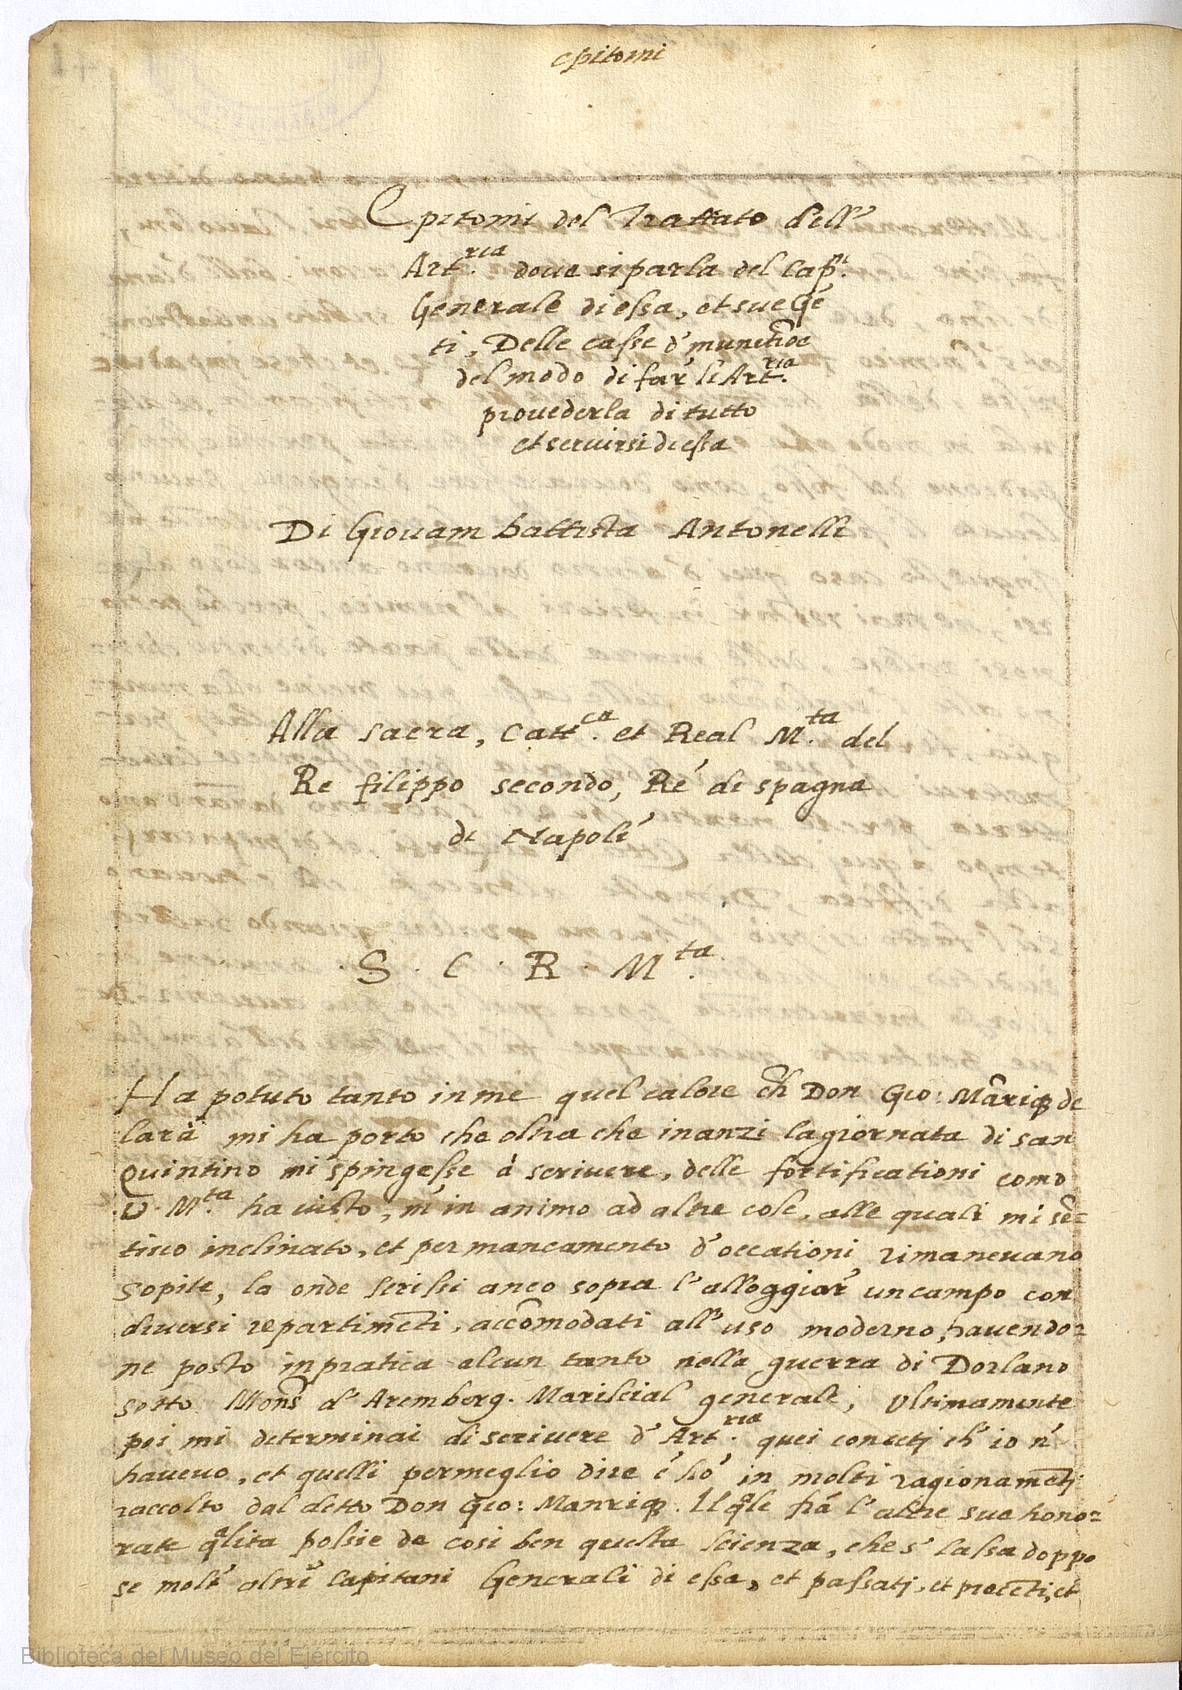 epitomi
Epitomi del Trattato dell'
Art.ria doue si parla del Capt.
Generale di essa, et sue Gē
ti, Delle casse d' munitiōe
del modo di far' le Art.ria
prouederla di tutto
et seruirsi di essa
Di Giouam battista Antonelli
Alla sacra, Catt.ca et Real M.ta del
Re filippo secondo, Ré di spagna
di Napoli
· S · C · R · M.ta
Ha potuto tanto in me quel calore ch̄ Don Gio: Māriq de
lara mi ha porto che oltra che inanzi la giornata di san
Quintino mi spingesse à scriuere, delle fortificationi como
V. M.ta ha uisto, m' in animo ad altre cose, alle quali mi sē=
tiuo inclinato, et per mancamento d' occationi rimaneuano
sopite, la onde scrissi anco sopra l' alloggiar' un campo con
diuersi repartimēti, accōmodati all' uso moderno, hauendo=
ne posto in pratica alcun tanto nella guerra di Dorlano
sotto Mons.r d' Aremberg. Mariscial generale, Vltimamente
poi mi determinai di scriuere d' Art.ria quei concetj ch' io n'
haueuo, et quelli per meglio dire c' hò in molti ragionamētj
raccolto dal detto Don Gio: Manriq. Il qle frà l' altre sue hono=
rate qlita possie de cosi ben questa scienza, che s' lassa doppo
se molt' altri Capitani Generali di essa, et passatj, et precētj, et